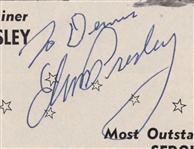 iner
SLEY
To Dennis
Elvis Presley
Most Outsta
SEPOR